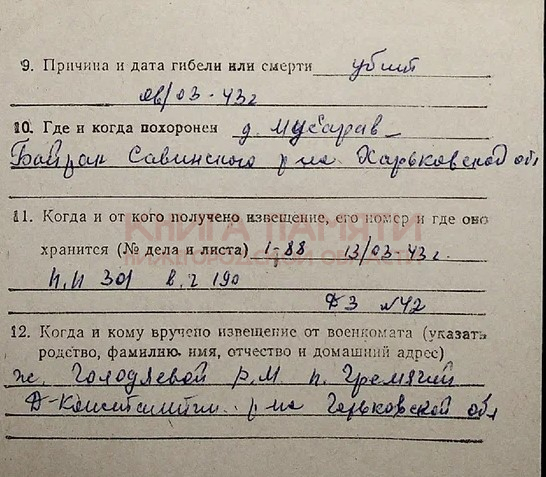 9. Причина и дата гибели или смерти убит
08/03-43г
10. Где и когда похоронен д. Мусарав-
Байрак Савинского р-на Харьковской обл
11. Когда и от кого получено извещение, его номер и где оно
хранится (№ дела и листа) 1-88 13/03-43г.
КНИГА ПАМЯТИ
НИЖЕГОРОДСКОЙ ОБЛАСТИ
п.п 301 в.г 190
Д3 №42
12. Когда и кому вручено извещение от военкомата (указать
родство, фамилию, имя, отчество и домашний адрес)
ж. Голодяевой Р.М п. Гремячий
Д-Константин. р-на Горьковской обл